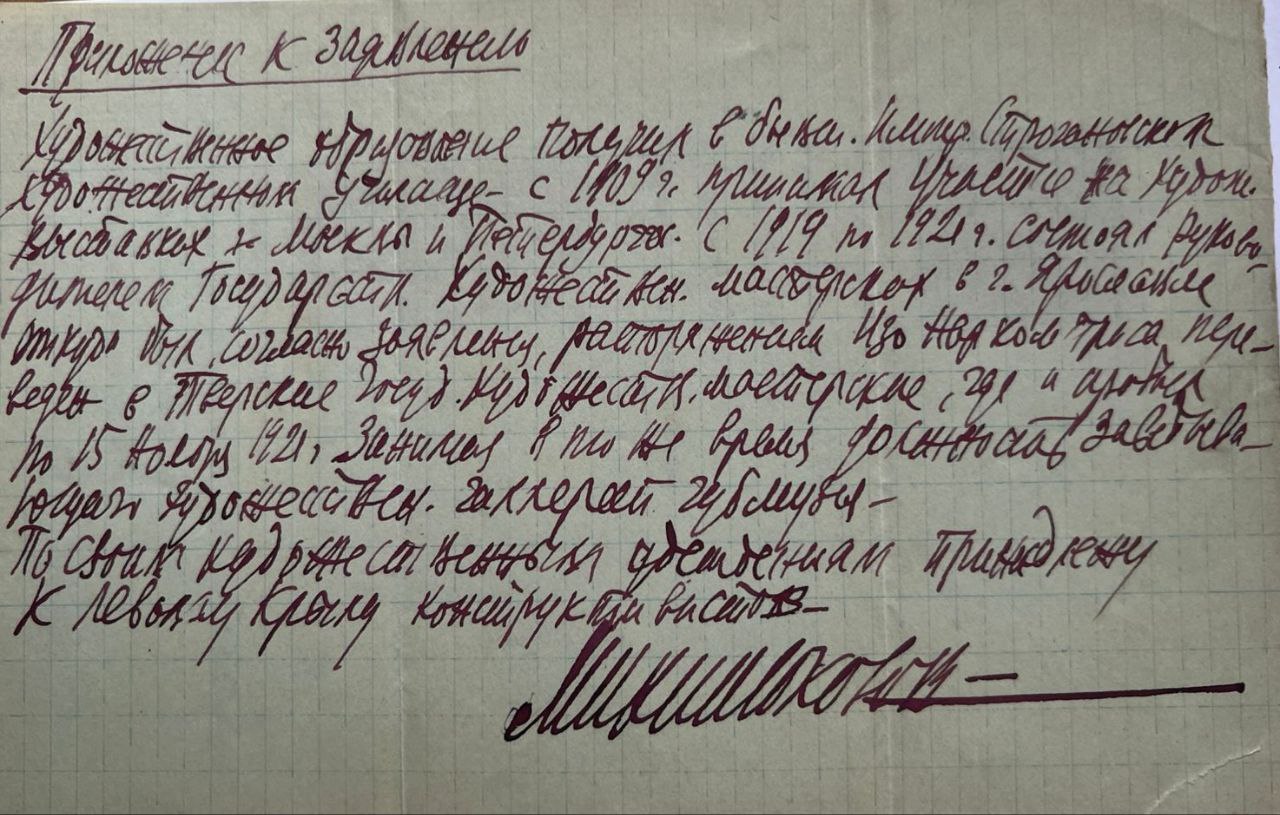 Приложение к заявлению
Художественное образование получил в бывш. Импер. Строгановском
художественном училище – с 1909 г. принимал участие на худож.
выставках г. Москвы и Петербурга. С 1919 по 1921 г. состоял руково-
дителем Государств. Художествен. мастерских в г. Ярославле
откуда был, согласно заявлению, распоряжением Изо Наркомпроса пере-
веден в Тверские Госуд. Художеств. мастерские, где и пробыл
по 15 Ноября 1921 г. занимая в то же время должность заведыва-
ющего художествен. галлереей губмузея –
По своим художественным убеждениям принадлежу
к левому крылу конструктивистов –